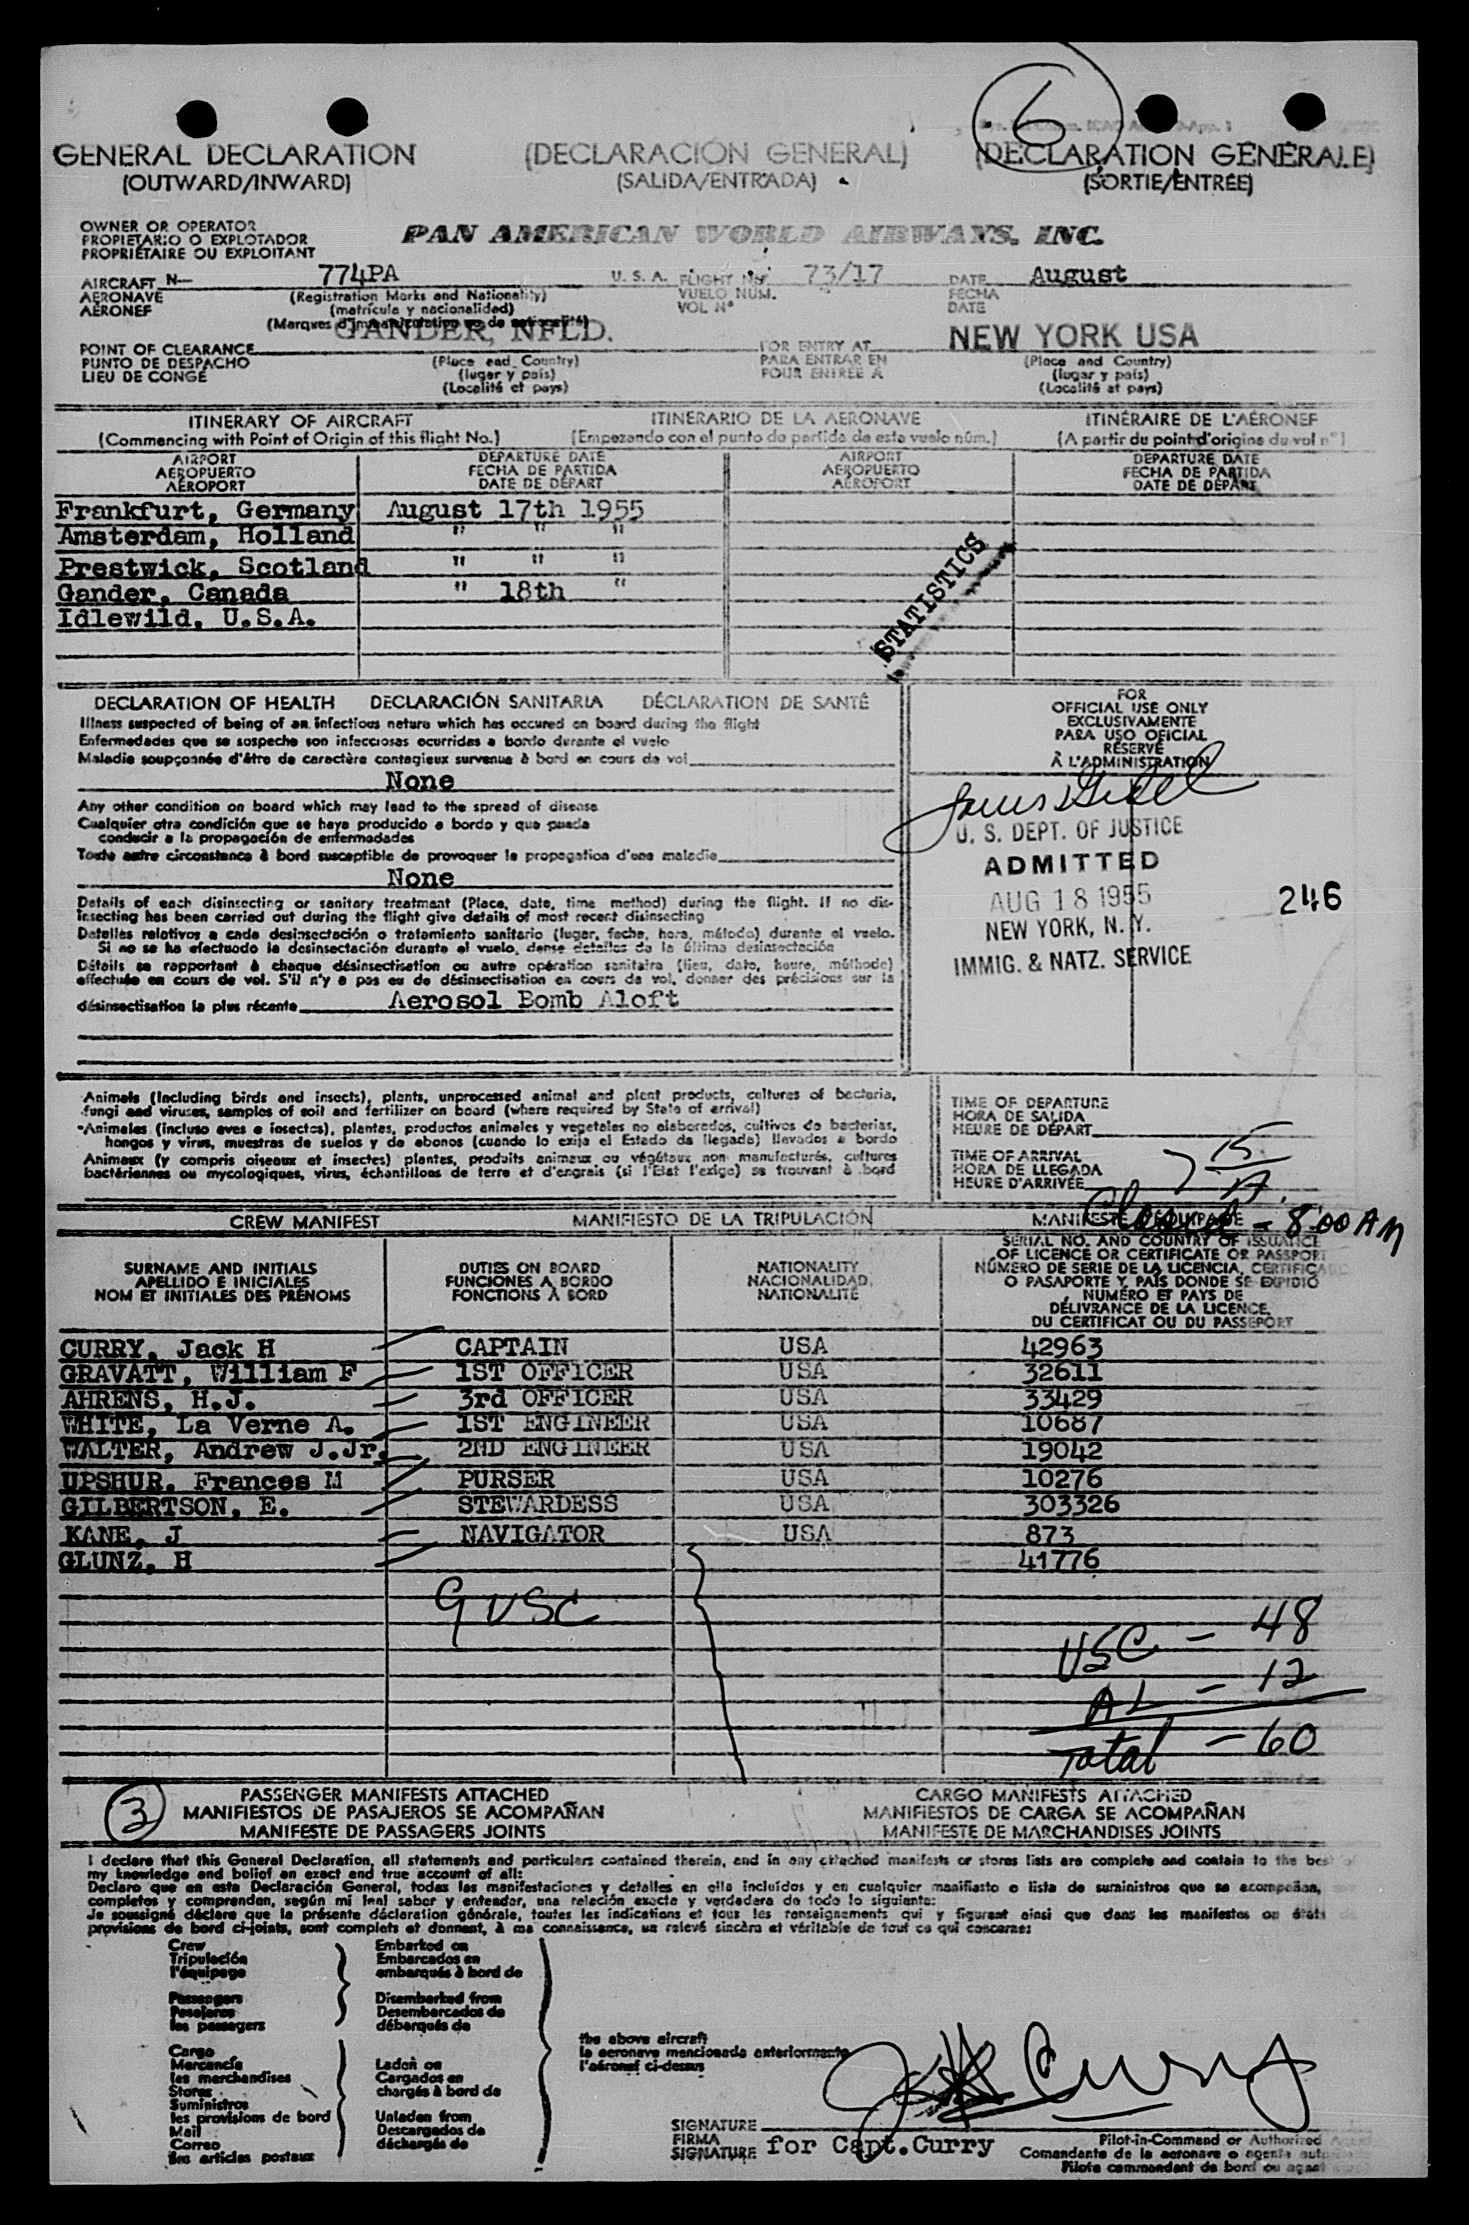 6
GENERAL DECLARATION (DECLARACIÓN GENERAL) (DÉCLARATION GÉNÉRALE)
(OUTWARD/INWARD) (SALIDA/ENTRADA) (SORTIE/ENTRÉE)
OWNER OR OPERATOR
PROPIETARIO O EXPLOTADOR
PROPRIÉTAIRE OU EXPLOITANT
PAN AMERICAN WORLD AIRWAYS, INC.
AIRCRAFT N— 774PA U. S. A. FLIGHT No. 73/17 DATE August
AERONAVE (Registration Marks and Nationality) VUELO NÚM. FECHA
AÉRONEF (matrícula y nacionalidad) VOL N° DATE
(Marques d'immatriculation et de nationalité)
POINT OF CLEARANCE GANDER, NFLD. FOR ENTRY AT NEW YORK USA
PUNTO DE DESPACHO (Place and Country) PARA ENTRAR EN (Place and Country)
LIEU DE CONGÉ (lugar y país) POUR ENTRÉE À (lugar y país)
(Localité et pays) (Localité et pays)
ITINERARY OF AIRCRAFT ITINERARIO DE LA AERONAVE ITINÉRAIRE DE L'AÉRONEF
(Commencing with Point of Origin of this flight No.) (Empezando con el punto de partida de este vuelo núm.) (A partir du point d'origine du vol n°)
AIRPORT DEPARTURE DATE AIRPORT DEPARTURE DATE
AEROPUERTO FECHA DE PARTIDA AEROPUERTO FECHA DE PARTIDA
AÉROPORT DATE DE DÉPART AÉROPORT DATE DE DÉPART
Frankfurt, Germany August 17th 1955
Amsterdam, Holland " " "
Prestwick, Scotland " " "
Gander, Canada " 18th "
Idlewild, U.S.A.
STATISTICS
DECLARATION OF HEALTH DECLARACIÓN SANITARIA DÉCLARATION DE SANTÉ
Illness suspected of being of an infectious nature which has occured on board during the flight
Enfermedades que se sospeche son infecciosas ocurridas a bordo durante el vuelo
Maladie soupçonnée d'être de caractère contagieux survenue à bord en cours de vol
None
Any other condition on board which may lead to the spread of disease
Cualquier otra condición que se haya producido a bordo y que pueda
conducir a la propagación de enfermedades
Toute autre circonstance à bord susceptible de provoquer la propagation d'une maladie
None
Details of each disinsecting or sanitary treatment (Place, date, time method) during the flight. If no dis-
insecting has been carried out during the flight give details of most recent disinsecting
Detalles relativos a cada desinsectación o tratamiento sanitario (lugar, fecha, hora, método) durante el vuelo.
Si no se ha efectuado la desinsectación durante el vuelo, dense detalles de la última desinsectación
Détails se rapportant à chaque désinsectisation ou autre opération sanitaire (lieu, date, heure, méthode)
effectuée en cours de vol. S'il n'y a pas eu de désinsectisation en cours de vol, donner des précisions sur la
désinsectisation la plus récente Aerosol Bomb Aloft
FOR
OFFICIAL USE ONLY
EXCLUSIVAMENTE
PARA USO OFICIAL
RÉSERVÉ
À L'ADMINISTRATION
U. S. DEPT. OF JUSTICE
ADMITTED
AUG 18 1955
NEW YORK, N. Y.
IMMIG. & NATZ. SERVICE
246
Animals (Including birds and insects), plants, unprocessed animal and plant products, cultures of bacteria,
fungi and viruses, samples of soil and fertilizer on board (where required by State of arrival)
Animales (incluso aves e insectos), plantas, productos animales y vegetales no elaborados, cultivos de bacterias,
hongos y virus, muestras de suelos y de abonos (cuando lo exija el Estado de llegada) llevados a bordo
Animaux (y compris oiseaux et insectes) plantes, produits animaux ou végétaux non manufacturés, cultures
bactériennes ou mycologiques, virus, échantillons de terre et d'engrais (si l'Etat l'exige) se trouvant à bord
TIME OF DEPARTURE
HORA DE SALIDA
HEURE DE DÉPART
TIME OF ARRIVAL
HORA DE LLEGADA
HEURE D'ARRIVÉE
7 15 A
Cleared - 8:00 AM
CREW MANIFEST MANIFIESTO DE LA TRIPULACIÓN MANIFESTE D'ÉQUIPAGE
SURNAME AND INITIALS
APELLIDO E INICIALES
NOM ET INITIALES DES PRÉNOMS
DUTIES ON BOARD
FUNCIONES A BORDO
FONCTIONS À BORD
NATIONALITY
NACIONALIDAD
NATIONALITÉ
SERIAL NO. AND COUNTRY OF ISSUANCE
OF LICENCE OR CERTIFICATE OR PASSPORT
NÚMERO DE SERIE DE LA LICENCIA, CERTIFICADO
O PASAPORTE Y PAÍS DONDE SE EXPIDIÓ
NUMÉRO ET PAYS DE
DÉLIVRANCE DE LA LICENCE,
DU CERTIFICAT OU DU PASSEPORT
CURRY, Jack H CAPTAIN USA 42963
GRAVATT, William F 1ST OFFICER USA 32611
AHRENS, H.J. 3rd OFFICER USA 33429
WHITE, La Verne A. 1ST ENGINEER USA 10687
WALTER, Andrew J.Jr. 2ND ENGINEER USA 19042
UPSHUR, Frances M PURSER USA 10276
GILBERTSON, E. STEWARDESS USA 303326
KANE, J NAVIGATOR USA 873
GLUNZ, H 41776
9 USC
USC - 48
AL - 12
Total - 60
3
PASSENGER MANIFESTS ATTACHED CARGO MANIFESTS ATTACHED
MANIFIESTOS DE PASAJEROS SE ACOMPAÑAN MANIFIESTOS DE CARGA SE ACOMPAÑAN
MANIFESTE DE PASSAGERS JOINTS MANIFESTE DE MARCHANDISES JOINTS
I declare that this General Declaration, all statements and particulars contained therein, and in any attached manifests or stores lists are complete and contain to the best of
my knowledge and belief an exact and true account of all:
Declaro que en esta Declaración General, todas las manifestaciones y detalles en ella incluídos y en cualquier manifiesto o lista de suministros que se acompañan,
completos y comprenden, según mi leal saber y entender, una relación exacta y verdadera de todo lo siguiente:
Je soussigné déclare que la présente déclaration générale, toutes les indications et tous les renseignements qui y figurent ainsi que dans les manifestes ou états de
provisions de bord ci-joints, sont complets et donnent, à ma connaissance, un relevé sincère et véritable de tout ce qui concerne:
Crew Embarked on
Tripulación Embarcados en
l'équipage embarqués à bord de
Passengers Disembarked from
Pasajeros Desembarcados de
les passagers débarqués de
the above aircraft
la aeronave mencionada anteriormente
l'aéronef ci-dessus
Cargo
Mercancía Laden on
les marchandises Cargados en
Stores chargés à bord de
Suministros
les provisions de bord Unladen from
Mail Descargados de
Correo déchargés de
les articles postaux
J H Curry
SIGNATURE
FIRMA
SIGNATURE for Capt.Curry
Pilot-in-Command or Authorized
Comandante de la aeronave o agente
Pilote commandant de bord ou agent